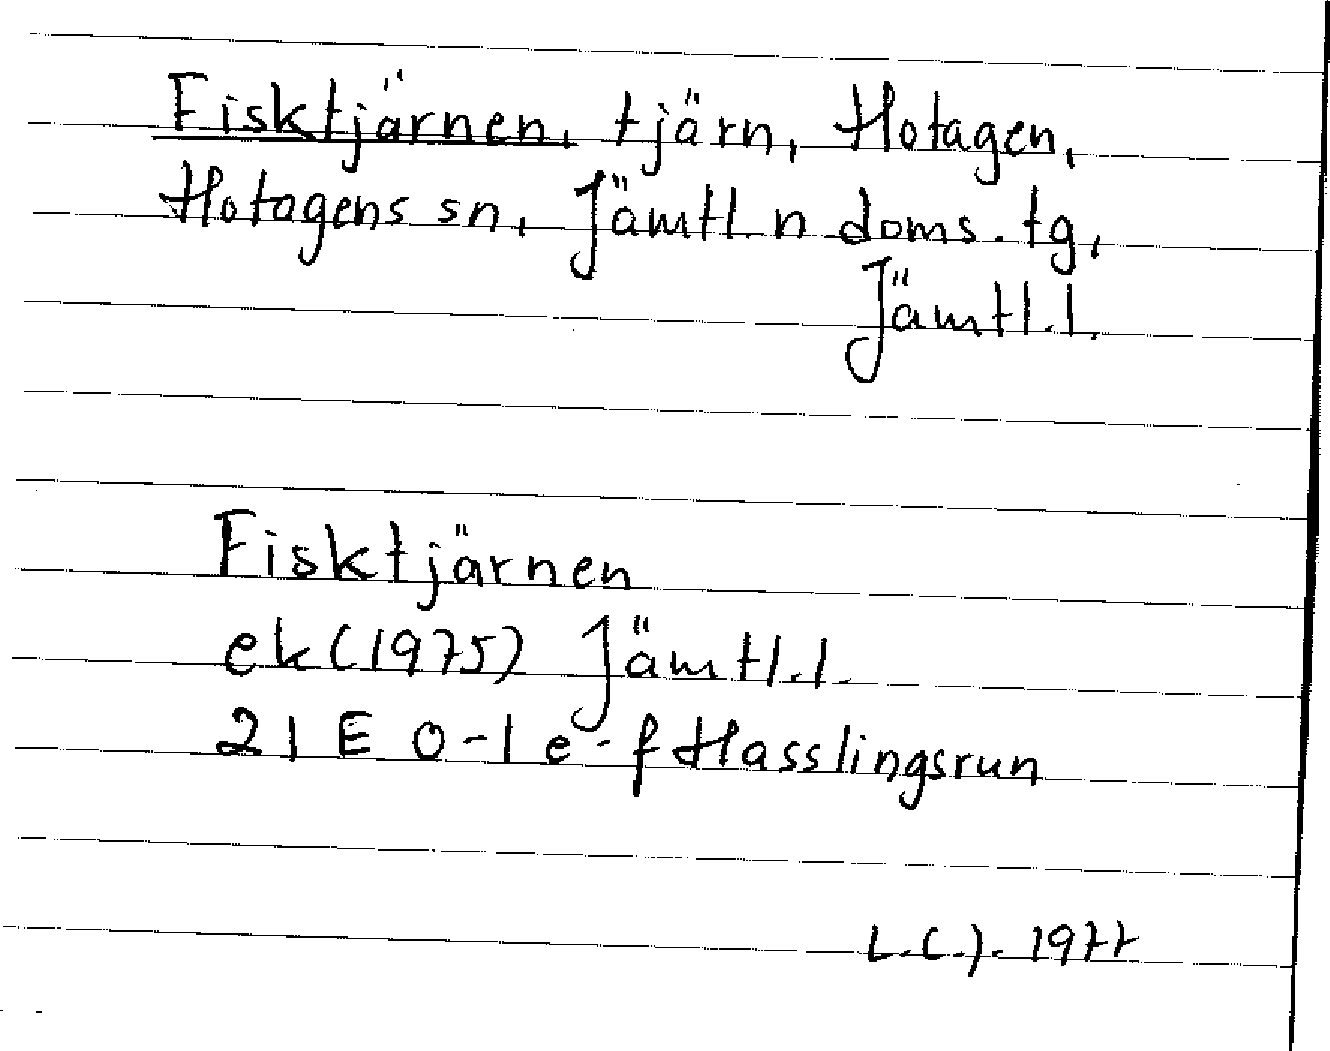 Fisktjärnen, tjärn, Hotagen,
Hotagens sn, Jämtl. n doms. tg,
Jämtl. l.
Fisktjärnen
ek (1975) Jämtl. l.
21 E 0-1 e-f Hasslingsrun
L.C.J. 1977